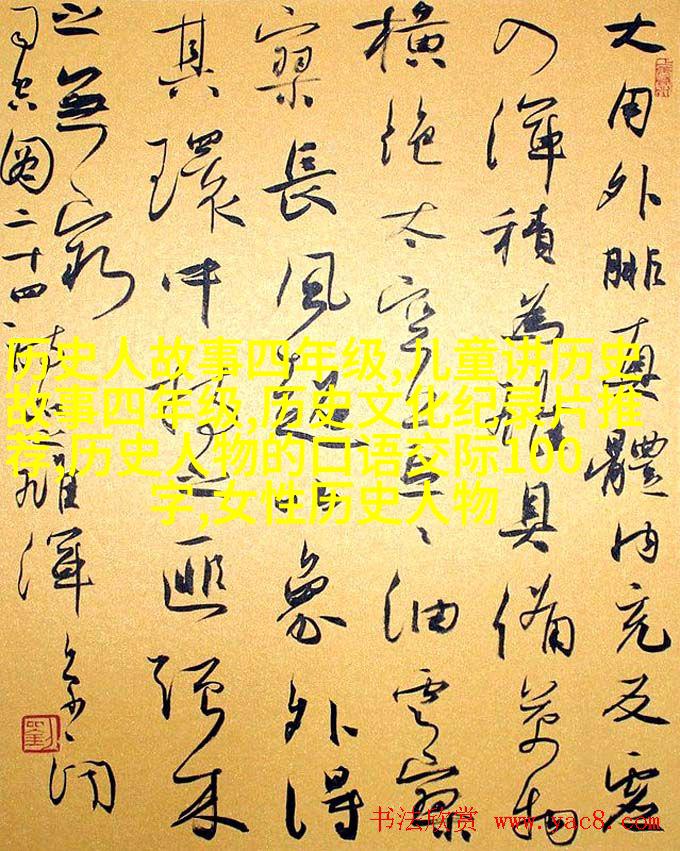 大用外腓真體内充反虛
入渾積為雄具備萬物
橫絕太空油雲寥
寥長風超以象外得
其環中持之匪强来
之無窮
司空圖二十四詩品之雄渾
历史人故事四年级,儿童讲历史
故事四年级,历史文化纪录片推
荐,历史人物的口语交际100
字,女性历史人物
书法欣赏 www.yac8.com